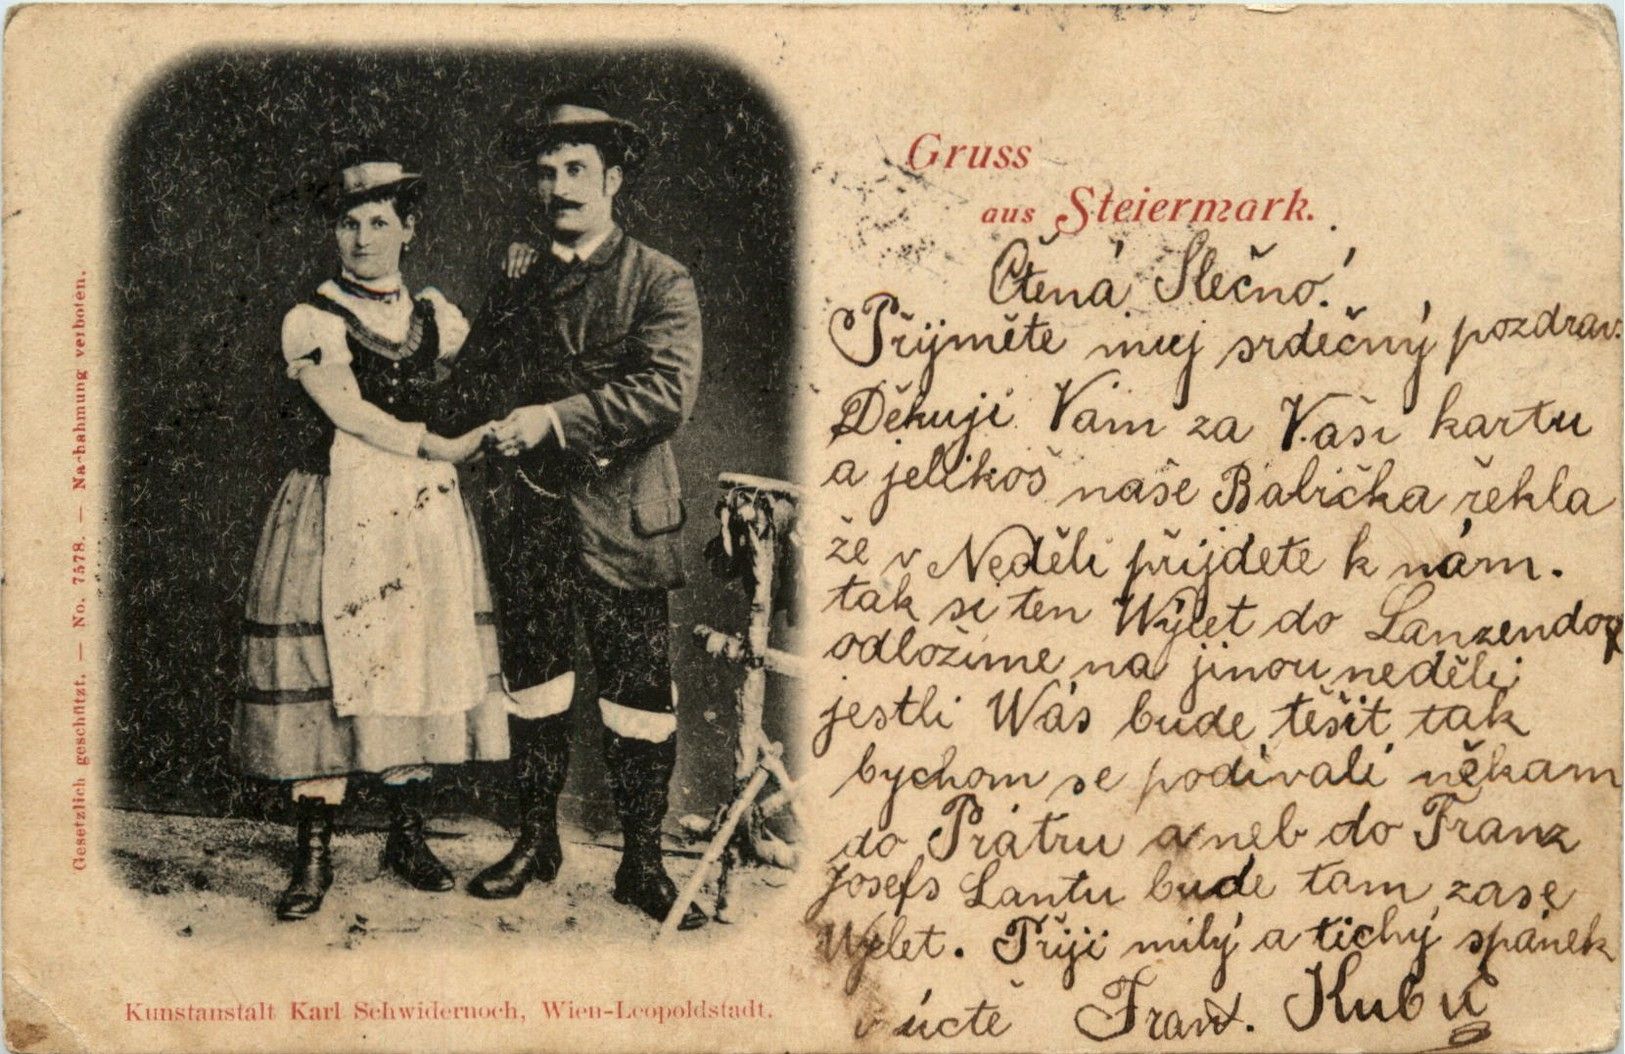 Gruss
aus Steiermark.
Čtená Slečno!
Přijměte muj srdečný pozdrav.
Děkuji Vám za Vaši kartu
a jelikoš naše Babička řekla
že v Neděli přijdete k nám.
tak si ten Wýlet do Lanzendorf
odložíme na jinou neděli
jestli Wás bude těšit tak
bychom se podívali někam
do Prátru aneb do Franz
Josefs Lantu bude tam zase
Wýlet. Přiji milý a tichý spánek
v úctě Franz. Kubů
Gesetzlich geschützt. — No. 7578. — Nachahmung verboten.
Kunstanstalt Karl Schwidernoch, Wien-Leopoldstadt.